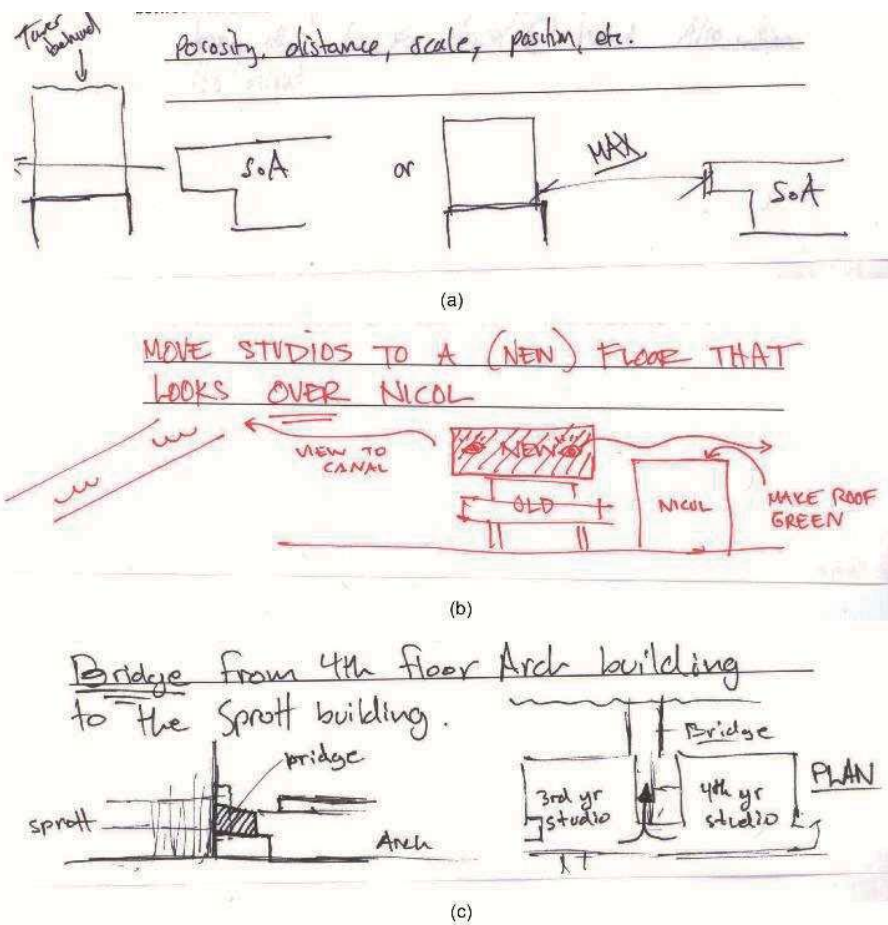 Tower
behind
Porosity, distance, scale, position, etc.
S.A
or
MAX
S.A
(a)
MOVE STUDIOS TO A (NEW) FLOOR THAT
LOOKS OVER NICOL
VIEW TO
CANAL
NEW
OLD
NICOL
MAKE ROOF
GREEN
(b)
Bridge from 4th floor Arch building
to the Sprott building.
bridge
sprott
Arch
Bridge
PLAN
3rd yr
studio
4th yr
studio
(c)